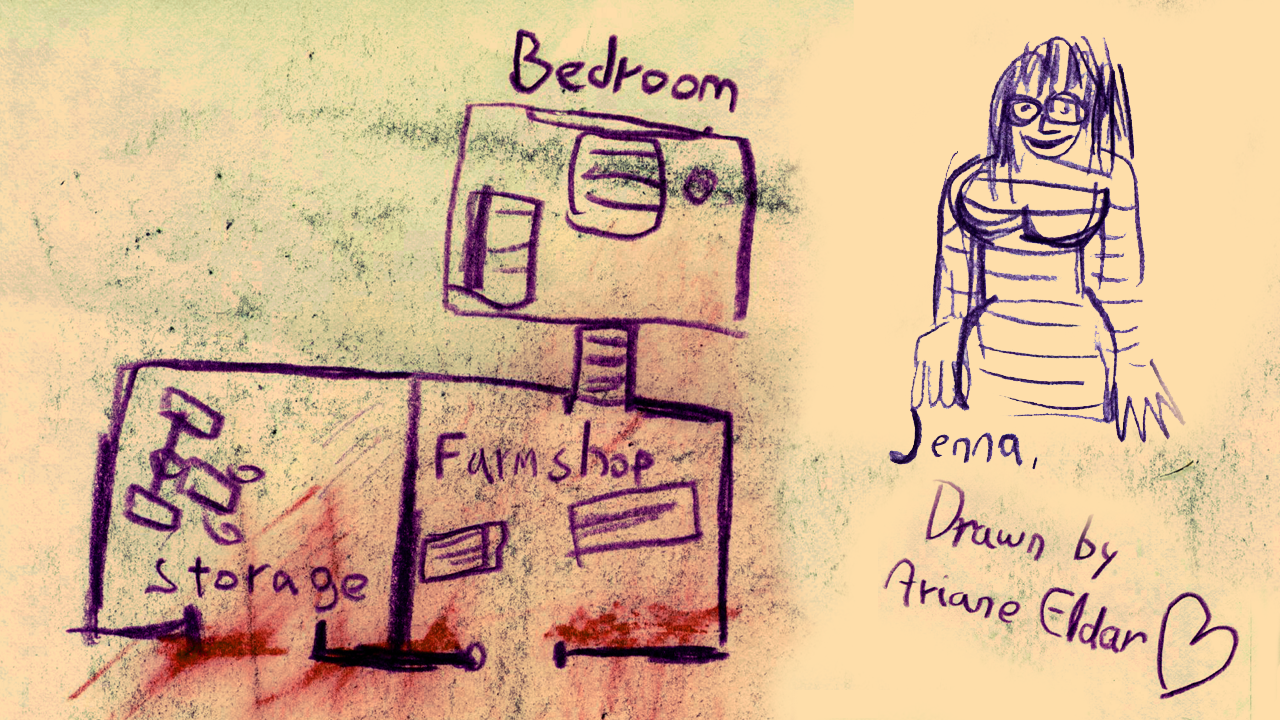 Bedroom
Farmshop
Storage
Jenna,
Drawn by
Ariane Eldar